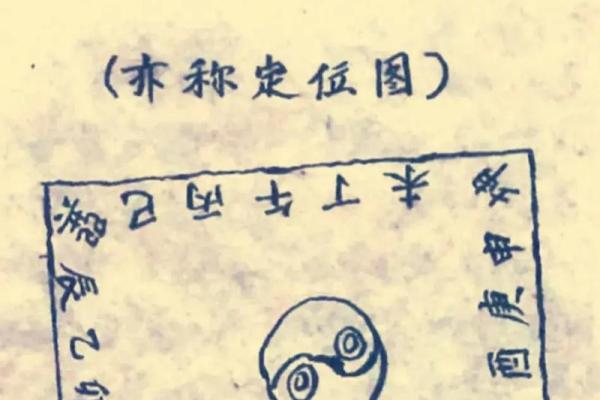 (亦称定位图)
巳丙午丁未
辰乙卯
申庚酉